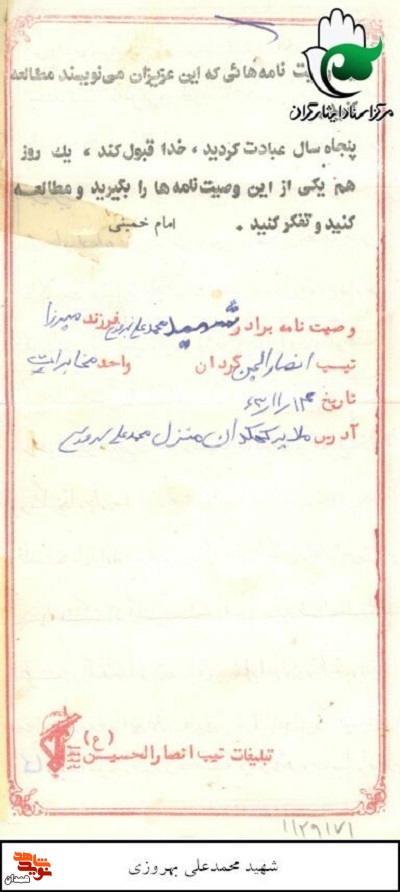 مرکز اسناد ایثارگران
وصیت نامه هائی که این عزیزان می نویسند مطالعه
پنجاه سال عبادت کردید، خدا قبول کند، یك روز
هم یکی از این وصیت نامه ها را بگیرید و مطالعه
کنید و تفکر کنید.
امام خمینی
وصیت نامه برادر شهید محمدعلی بهروزی فرزند میرزا
تیپ انصارالحسین گردان واحد مخابرات
تاریخ
آدرس ملایر منزل محمدعلی بهروزی
تبلیغات تیپ انصارالحسین (ع)
۱۱۲۹۱۷۱
شهید محمدعلی بهروزی
نوید شاهد
همدان